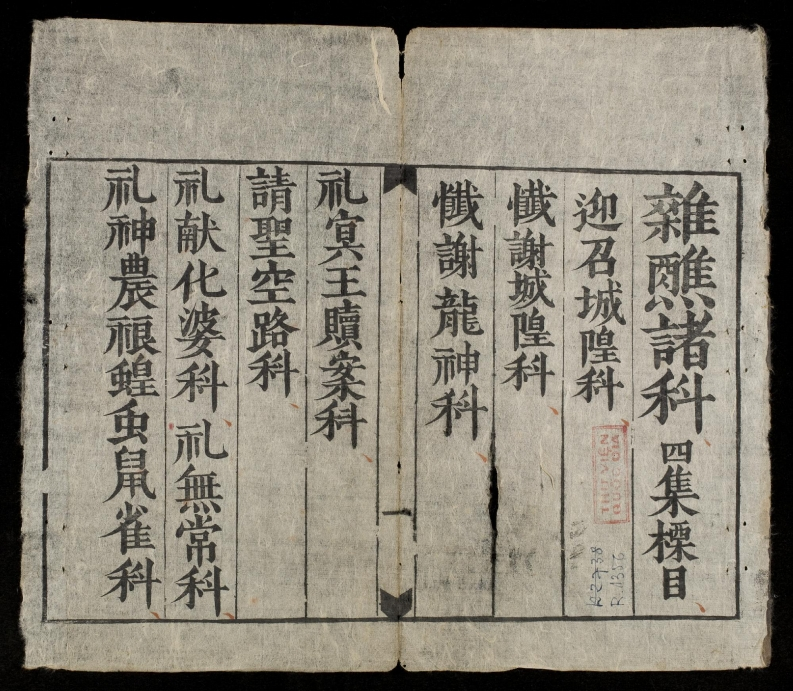 雜醮諸科 四集標目
迎召城隍科
懺謝城隍科
懺謝龍神科
一
礼冥王贖案科
請聖空路科
礼献化婆科 礼無常科
礼神農祳蝗虫鼠雀科
THƯ VIỆN
QUỐC GIA
R.1386